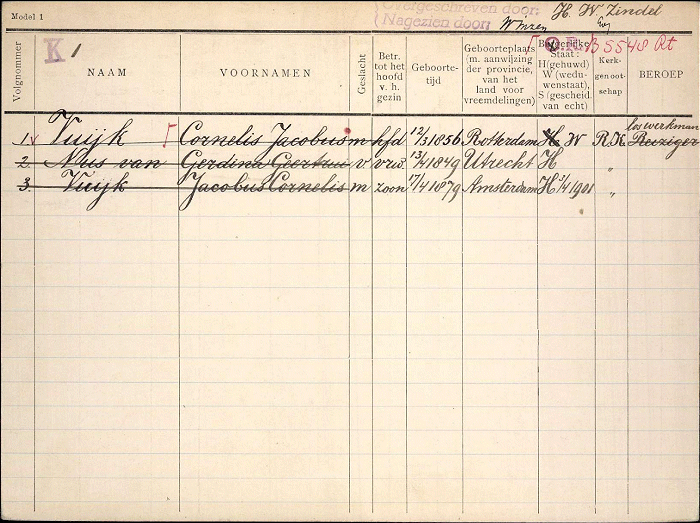 Model 1
Overgeschreven door: H. W. Zindel
Nagezien door:
K 1
B 5548 Rt
Volgnommer
NAAM
VOORNAMEN
Geslacht
Betr. tot het hoofd v. h. gezin
Geboorte-tijd
Geboorteplaats (m. aanwijzing der provincie, van het land voor vreemdelingen)
Burgerlijke Staat: H (gehuwd) W (wedu-wenstaat), S (gescheid. van echt)
Kerk-genoot-schap
BEROEP
los werkman
1. Vuijk Cornelis Jacobus m hfd 12/3 1856 Rotterdam H W R.K. Reiziger
2. Nus van Gerdina Geertrui v vrw. 13/4 1849 Utrecht H "
3. Vuijk Jacobus Cornelis m zoon 17/4 1879 Amsterdam H 3/4 1901 "